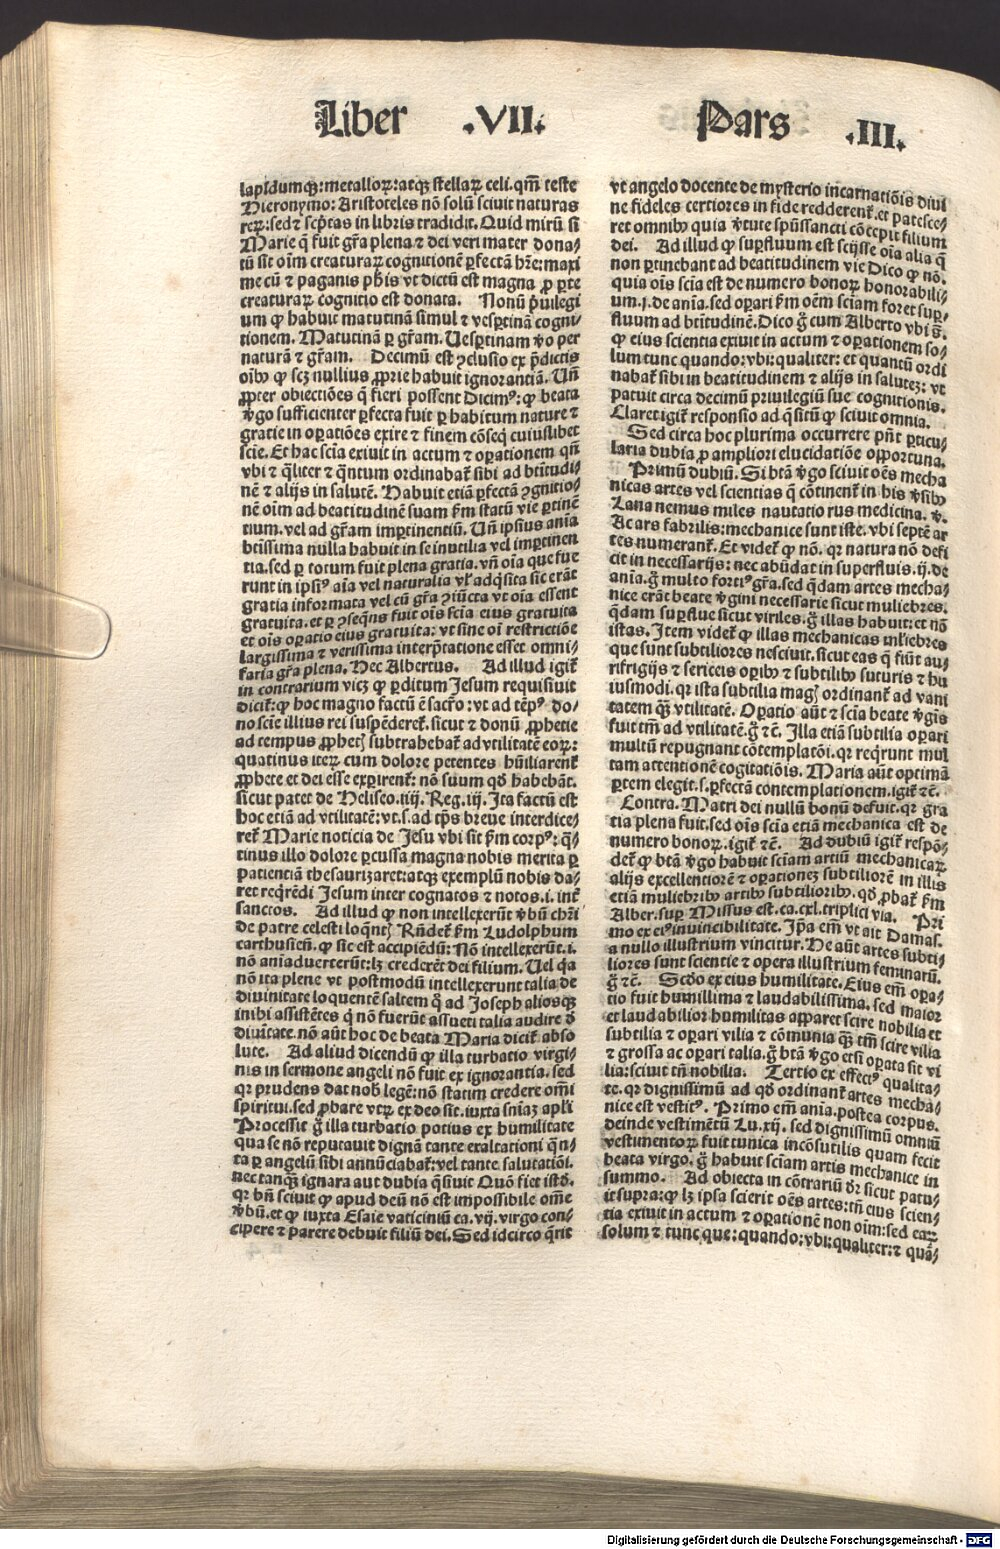 Liber .VII. Pars .III.
lapidumqꝫ: metalloꝝ: atqꝫ stellaꝝ celi. qm̄ teste
Hieronymo: Aristoteles nō solū sciuit naturas
reꝝ: sed ⁊ scp̄tas in libris tradidit. Quid mirū si
Marie q̄ fuit gr̄a plena. ⁊ dei veri mater dona-
tū sit oīm creaturaꝝ cognitionē ꝑfectā hr̄e: maxi
me cū ⁊ paganis ph̄is vt dictū est magna ꝓ ꝑte
creaturaꝝ cognitio est donata. Nonū p̄uilegi
um ꝙ habuit matutinā simul ⁊ vesꝑtinā cogni/
tionem. Matutinā ꝑ gr̄am. Uesꝑtinam v̄o per
naturā ⁊ gr̄am. Decimū est ꝯclusio ex p̄dictis
oībꝰ ꝙ scꝫ nullius ꝓprie habuit ignorantiā. Un̄
ꝓpter obiectiōes q̄ fieri possent Dicimꝰ: ꝙ beata
v̄go sufficienter ꝑfecta fuit ꝑ habitum nature ⁊
gratie in oꝑatiōes exire ⁊ finem cōseq̄ cuiuslibet
scīe. Et hac scīa exiuit in actum ⁊ oꝑationem qn̄
vbi ⁊ q̄liter ⁊ q̄ntum ordinabat̄ sibi ad btītudi/
nē ⁊ alijs in salutē. Habuit etiā ꝑfectā ꝯgnitio/
nē oīm ad beatitudinē suam ẜm statū vie ꝑtinē
tium. vel ad gr̄am imꝑtinentiū. Un̄ ipsius anīa
btīssima nulla habuit in se inutilia vel imꝑtinen
tia. sed ꝑ totum fuit plena gratia. vn̄ oīa que fue
runt in ipsiꝰ aīa vel naturalia vl̄ adq̄sita sic erāt
gratia informata vel cū gr̄a ꝯiūcta vt oīa essent
gratuita. et ꝑ ꝯseq̄ns fuit oīs scīa eius gratuita
et oīs oꝑatio eius gratuita: vt sine oī restrictiōe
largissima ⁊ verissima interp̄tatione esset omni/
faria gr̄a plena. Hec Albertus. Ad illud igit̄
in contrarium vicꝫ ꝙ ꝑditum Jesum requisiuit
dicit̄: ꝙ hoc magno factū ē sacr̄o: vt ad tēpꝰ do/
no scīe illius rei suspēderet̄. sicut ⁊ donū ꝓphetie
ad tempus ꝓphetꝭ subtrahebat̄ ad vtilitatē eoꝝ:
quatinus iteꝝ cum dolore petentes hūiliarent̄
ꝓphete et dei esse exꝑirent̄: nō suum qd̄ habebāt.
sicut patet de Heliseo. iiij. Reg. iij. Ita factū est
hoc etiā ad vtilitatē: vt. s. ad tp̄s breue interdice/
ret̄ Marie noticia de Jesu vbi sit ẜm corpꝰ: q̄-
tinus illo dolore ꝑcussa magna nobis merita ꝑ
patientiā thesaurizaret: atqꝫ exemplū nobis da/
ret req̄rēdi Jesum inter cognatos ⁊ notos. i. int̄
sanctos. Ad illud ꝙ non intellexerūt v̄bū chr̄i
de patre celesti loq̄ntꝭ Rn̄det̄ ẜm Ludolphum
carthusiēn̄. ꝙ sic est accipiēdū: Nō intellexerūt. i.
nō anīaduerterūt: lꝫ crederēt dei filium. Uel q̄a
nō ita plene vt postmodū intellexerunt talia de
diuinitate loquentē saltem q̄ ad Joseph aliosqꝫ
inibi assistētes q̄ nō fuerūt assueti talia audire d̄
diuītate. nō aūt hoc de beata Maria dicit̄ abso
lute. Ad aliud dicendū ꝙ illa turbatio virgi/
nis in sermone angeli nō fuit ex ignorantia. sed
qꝛ prudens dat nob̄ legē: nō statim credere om̄i
spiritui. sed ꝓbare vtꝝ ex deo sit. iuxta sn̄iaꝫ apl̄i
Processit g̊ illa turbatio potius ex humilitate
qua se nō reputauit dignā tante exaltationi q̄n/
ta ꝑ angelū sibi annūciabat̄: vel tante salutatiōi.
nec tanqꝫ ignara aut dubia q̄siuit Quō fiet istd̄.
qꝛ bn̄ sciuit ꝙ apud deū nō est impossibile om̄e
v̄bū. et ꝙ iuxta Esaie vaticiniū ca. vij. virgo con/
cipere ⁊ parere debuit filiū dei. Sed idcirco q̄rit
vt angelo docente de mysterio incarnatiōis diui
ne fideles certiores in fide redderent̄. et patesce/
ret omnibꝰ quia v̄tute sp̄ūssancti cōcepit filium
dei. Ad illud ꝙ suꝑfluum est scijsse oīa alia q̄
non ꝑtinebant ad beatitudinem vie Dico ꝙ nō.
quia oīs scīa est de numero bonoꝝ honorabili/
um. j. de anīa. sed oꝑari ẜm oēm scīam foret suꝑ/
fluum ad btītudinē. Dico g̊ cum Alberto vbi s̄.
ꝙ eius scientia exiuit in actum ⁊ oꝑationem so/
lum tunc quando: vbi: qualiter: et quantū ordi
nabat̄ sibi in beatitudinem ⁊ alijs in salutez: vt
patuit circa decimū priuilegiū sue cognitionis.
Claret igit̄ responsio ad q̄sitū ꝙ sciuit omnia.
Sed circa hoc plurima occurrere pn̄t ꝑticu/
laria dubia ꝓ ampliori elucidatiōe opportuna.
Primū dubiū. Si btā v̄go sciuit oēs mecha
nicas artes vel scientias q̄ cōtinent̄ in his v̄sibꝰ
Lana nemus miles nauigatio rus medicina. v̄.
Ac ars fabrilis: mechanice sunt iste. vbi septē ar
tes numerant̄. Et videt̄ ꝙ nō. qꝛ natura nō defi
cit in necessarijs: nec abūdat in superfluis. ij. de
anīa. g̊ multo fortiꝰ gr̄a. sed q̄dam artes mecha/
nice erāt beate v̄gini necessarie sicut muliebres.
q̄dam suꝑflue sicut viriles. g̊ illas habuit: et nō
istas. Item videt̄ ꝙ illas mechanicas ml̄iebres
que sunt subtiliores nesciuit. sicut eas q̄ fiūt au/
rifrigijs ⁊ sericeis oꝑibꝰ ⁊ subtilibꝰ suturis ⁊ hu
iusmodi. qꝛ ista subtilia magꝭ ordinant̄ ad vani
tatem qꝫ vtilitatē. Oꝑatio aūt ⁊ scīa beate v̄gīs
fuit tm̄ ad vtilitatē. g̊ ⁊c̄. Illa etiā subtilia oꝑari
multū repugnant cōtemplatōi. qꝛ reqr̄unt mul
tam attentionē cogitatiōis. Maria aūt optimā
ꝑtem elegit. s. ꝑfectā contemplationem. igit̄ ⁊c̄.
Contra. Matri dei nullū bonū defuit. qꝛ gra
tia plena fuit. sed oīs scīa etiā mechanica est de
numero bonoꝝ. igit̄ ⁊c̄. Ad dubiū igit̄ respō/
det̄ ꝙ btā v̄go habuit scīam artiū mechanicaꝝ
alijs excellentiorē ⁊ oꝑationez subtiliorē in illis
etiā muliebribꝰ artibꝰ subtilioribꝰ. qd̄ ꝓbat̄ ẜm
Alber. suꝑ Missus est. ca. cxl. triplici via. Pri
mo ex eiꝰ inuincibilitate. Ip̄a em̄ vt ait Damas.
a nullo illustrium vincitur. He aūt artes subti/
liores sunt scientie ⁊ opera illustrium feminarū.
g̊ ⁊c̄. Scd̄o ex eius humilitate. Eius em̄ oꝑa/
tio fuit humillima ⁊ laudabilissima. sed maior
et laudabilior humilitas apparet scire nobilia et
subtilia ⁊ oꝑari vilia ⁊ cōmunia qꝫ tm̄ scire vilia
⁊ grossa ac oꝑari talia. g̊ btā v̄go etsi oꝑata sit vi
lia: sciuit tn̄ nobilia. Tertio ex effectꝰ qualita/
te. qꝛ dignissimū ad qd̄ ordinant̄ artes mecha/
nice est vestitꝰ. Primo em̄ anīa. postea corpus.
deinde vestimētū Lu. xij. sed dignissimū omniū
vestimentoꝝ fuit tunica incōsutilis quam fecit
beata virgo. g̊ habuit scīam artis mechanice in
summo. Ad obiecta in cōtrariū dr̄ sicut patu/
it supra: ꝙ lꝫ ipsa scierit oēs artes: tn̄ eius scien/
tia exiuit in actum ⁊ oꝑationē non oīm: sed eaꝝ
solum ⁊ tunc que: quando: vbi: qualiter: ⁊ quā/
Digitalisierung gefördert durch die Deutsche Forschungsgemeinschaft - DFG